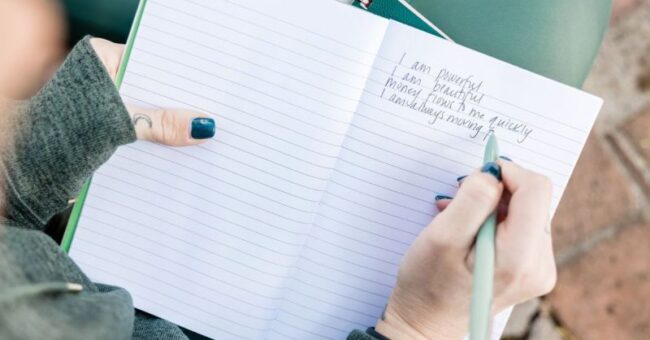 I am powerful
I am beautiful
money flows to me quickly
I am always moving